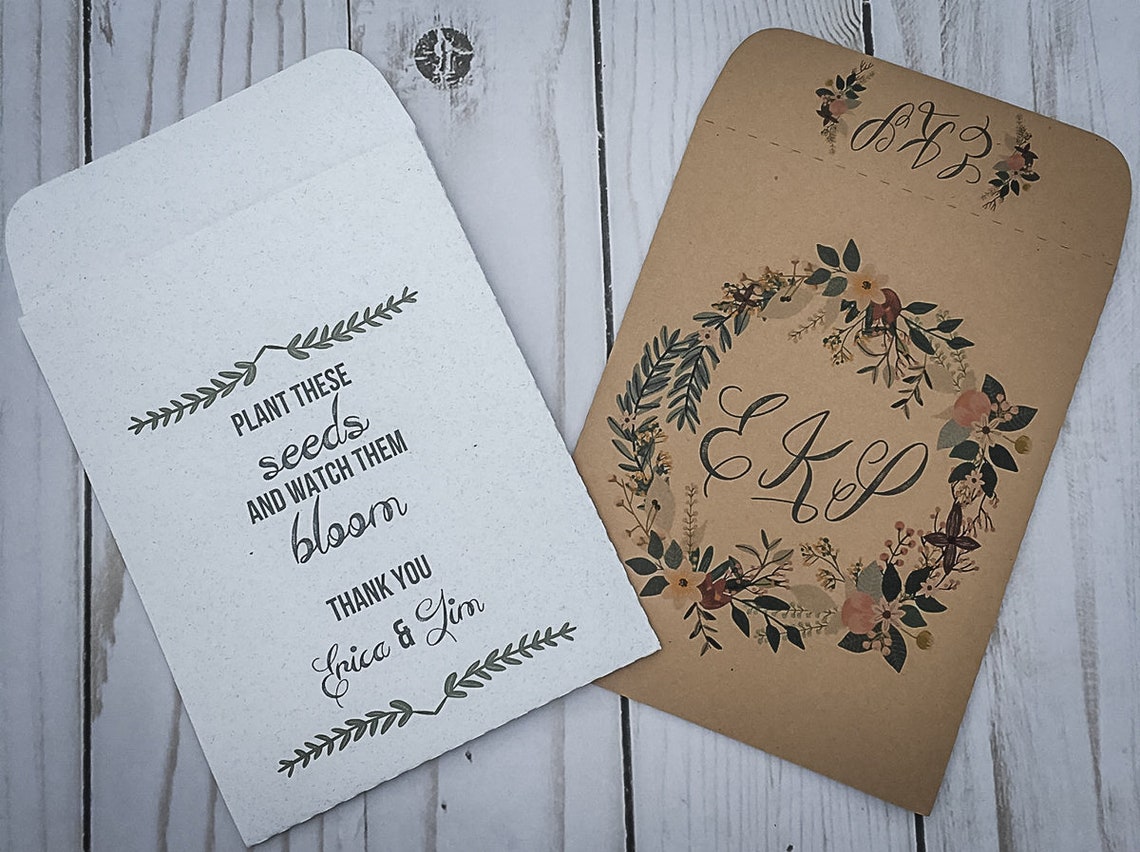 PLANT THESE
seeds
AND WATCH THEM
bloom
THANK YOU
Erica & Jim
EKP